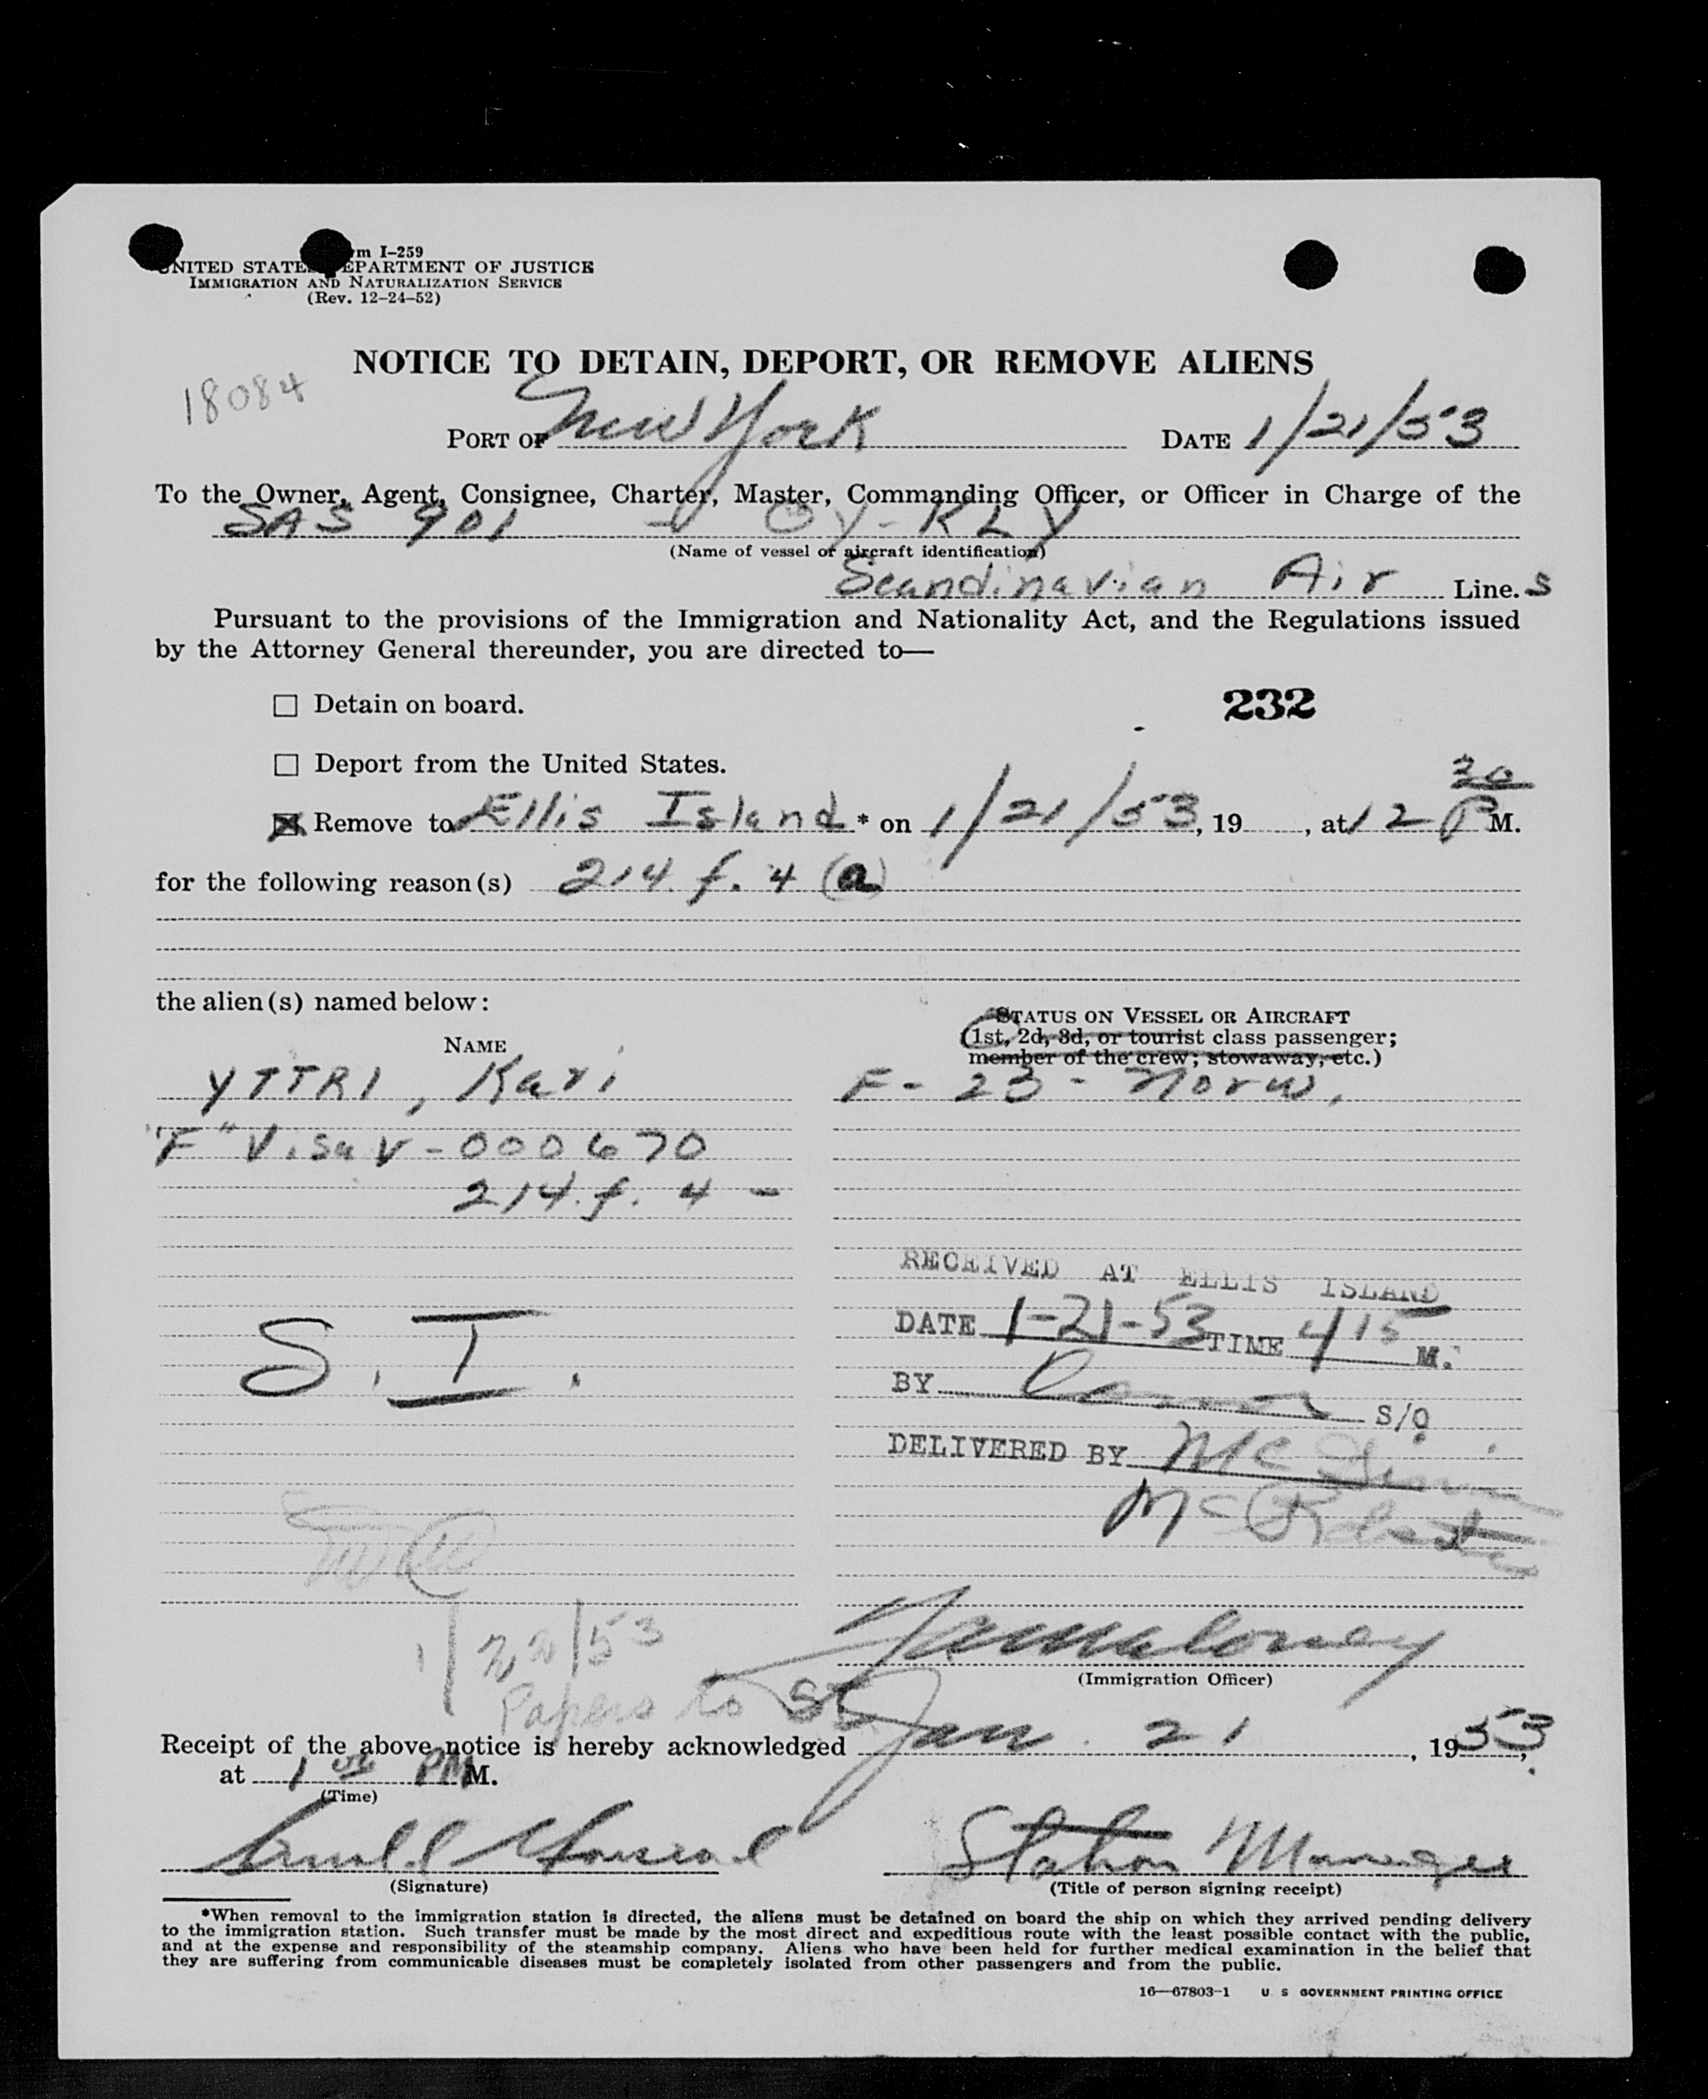 Form I-259
UNITED STATES DEPARTMENT OF JUSTICE
IMMIGRATION AND NATURALIZATION SERVICE
(Rev. 12-24-52)
NOTICE TO DETAIN, DEPORT, OR REMOVE ALIENS
18084
PORT OF New York DATE 1/21/53
To the Owner, Agent, Consignee, Charter, Master, Commanding Officer, or Officer in Charge of the
SAS 901 - OY-KLY
(Name of vessel or aircraft identification)
Scandinavian Air Line.s
Pursuant to the provisions of the Immigration and Nationality Act, and the Regulations issued
by the Attorney General thereunder, you are directed to—
☐ Detain on board.
232
☐ Deport from the United States.
☒ Remove to Ellis Island * on 1/21/53, 19 , at 12 30 P M.
for the following reason(s) 214. f. 4 (a)
the alien(s) named below:
NAME
STATUS ON VESSEL OR AIRCRAFT
(1st, 2d, 3d, or tourist class passenger;
member of the crew; stowaway, etc.)
YTTRI, Kari F - 23 - Norw.
"F" Visa V-000670
214. f. 4 -
RECEIVED AT ELLIS ISLAND
DATE 1-21-53 TIME 4 15 M.
S. I.
BY S/O
DELIVERED BY
1/22/53
(Immigration Officer)
Papers to SI
Receipt of the above notice is hereby acknowledged Jan. 21, 1953,
at 1 00 PM M.
(Time)
Station Manager
(Signature) (Title of person signing receipt)
*When removal to the immigration station is directed, the aliens must be detained on board the ship on which they arrived pending delivery
to the immigration station. Such transfer must be made by the most direct and expeditious route with the least possible contact with the public,
and at the expense and responsibility of the steamship company. Aliens who have been held for further medical examination in the belief that
they are suffering from communicable diseases must be completely isolated from other passengers and from the public.
16—67803-1 U S GOVERNMENT PRINTING OFFICE